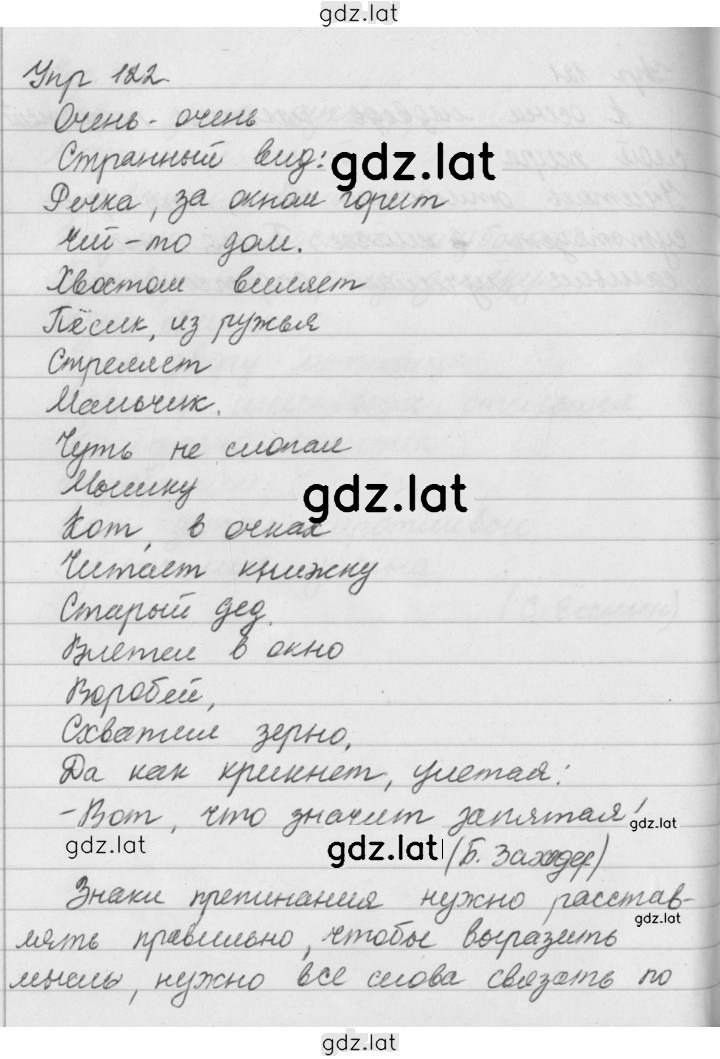 gdz.lat
Упр 122
Очень-очень
Странный вид:
gdz.lat
Речка, за окном горит
Чей-то дом.
Хвостом виляет
Пёсик, из ружья
Стреляет
Мальчик.
Чуть не слопал
Мышку
gdz.lat
Кот, в очках
Читает книжку
Старый дед.
Влетел в окно
Воробей,
Схватил зерно,
Да как крикнет, улетая:
-Вот, что значит запятая!
gdz.lat
gdz.lat
gdz.lat
(Б. Заходер)
Знаки препинания нужно расстав-
gdz.lat
лять правильно, чтобы выразить
мысль, нужно все слова связать по
gdz.lat